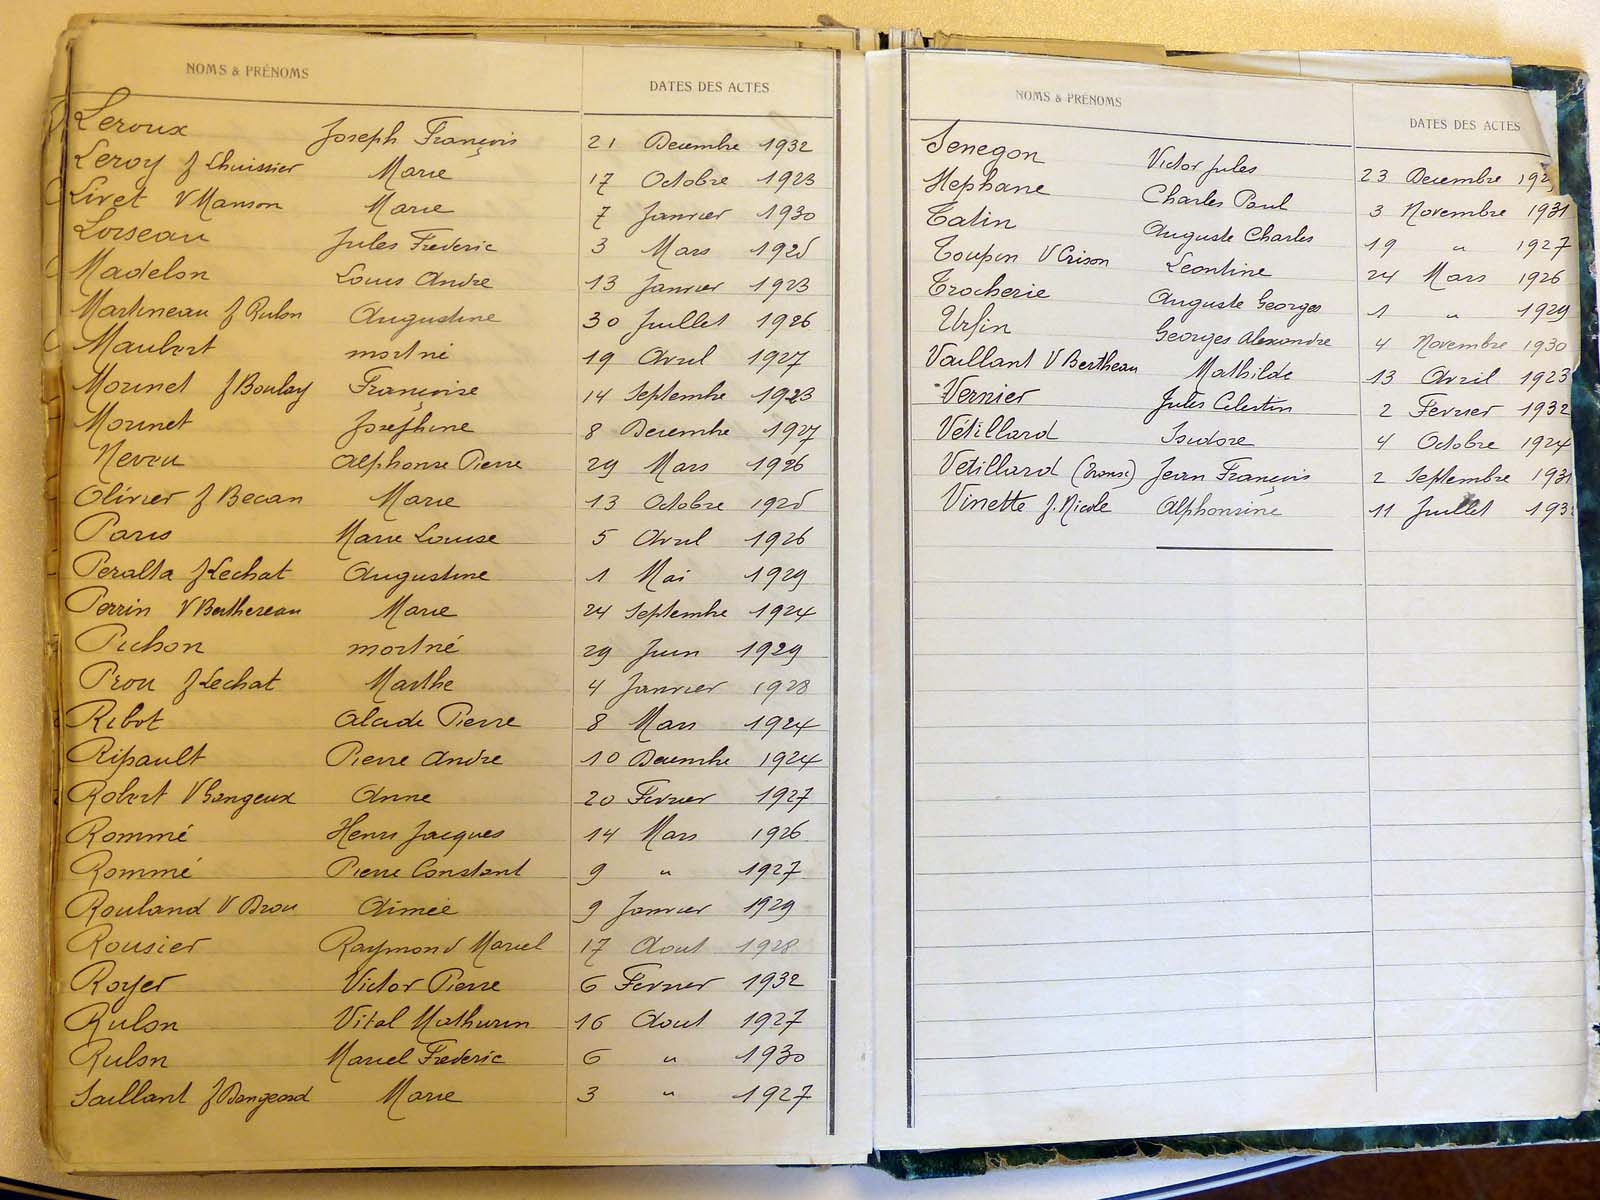 NOMS & PRÉNOMS DATES DES ACTES
Leroux Joseph François 21 Decembre 1932
Leroy f Lhuissier Marie 17 Octobre 1923
Livet V Manson Marie 7 Janvier 1930
Loiseau Jules Frederic 3 Mars 1925
Madelon Louis Andre 13 Janvier 1923
Martineau f Rulon Augustine 30 Juillet 1926
Maubert mort né 19 Avril 1927
Morinet f Boulay Françoise 14 Septembre 1923
Morinet Joséphine 8 Decembre 1927
Neveu Alphonse Pierre 29 Mars 1926
Olivier f Becan Marie 13 Octobre 1925
Paris Marie Louise 5 Avril 1926
Peralta f Lechat Augustine 1 Mai 1929
Perrin V Berthereau Marie 24 Septembre 1924
Pichon mort né 29 Juin 1929
Prou f Lechat Marthe 4 Janvier 1928
Ribot Alcide Pierre 8 Mars 1924
Ripault Pierre Andre 10 Decembre 1924
Robert V Bangeux Anne 20 Fevrier 1927
Rommé Henri Jacques 14 Mars 1926
Rommé Pierre Constant 9 " 1927
Rouland V Brou Aimée 9 Janvier 1929
Rousier Raymond Marcel 17 Aout 1928
Royer Victor Pierre 6 Fevrier 1932
Rulon Vital Mathurin 16 Aout 1927
Rulon Marcel Frederic 6 " 1930
Saillant f Dangeard Marie 3 " 1927
NOMS & PRÉNOMS DATES DES ACTES
Senegon Victor Jules 23 Decembre
Stephane Charles Paul 3 Novembre 1931
Tatin Auguste Charles 19 " 1927
Toupin V Crison Leontine 24 Mars 1926
Trocherie Auguste Georges 1 " 1929
Urfin Georges Alexandre 4 Novembre 1930
Vaillant V Bertheau Mathilde 13 Avril 1923
Vernier Jules Celestin 2 Fevrier 1932
Vétillard Isidore 4 Octobre 1924
Vetillard (Transc) Jean François 2 Septembre 1931
Vinette f. Nicole Alphonsine 11 Juillet 193